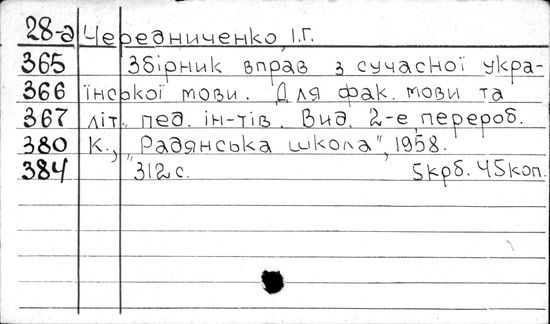 28-д Чередниченко, І.Г.
365 Збірник вправ з сучасної укра-
366 їнської мови. Для фак. мови та
367 літ. пед. ін-тів. Вид. 2-е, перероб.
380 К., "Радянська школа", 1958.
384 312 с. 5 крб. 45 коп.